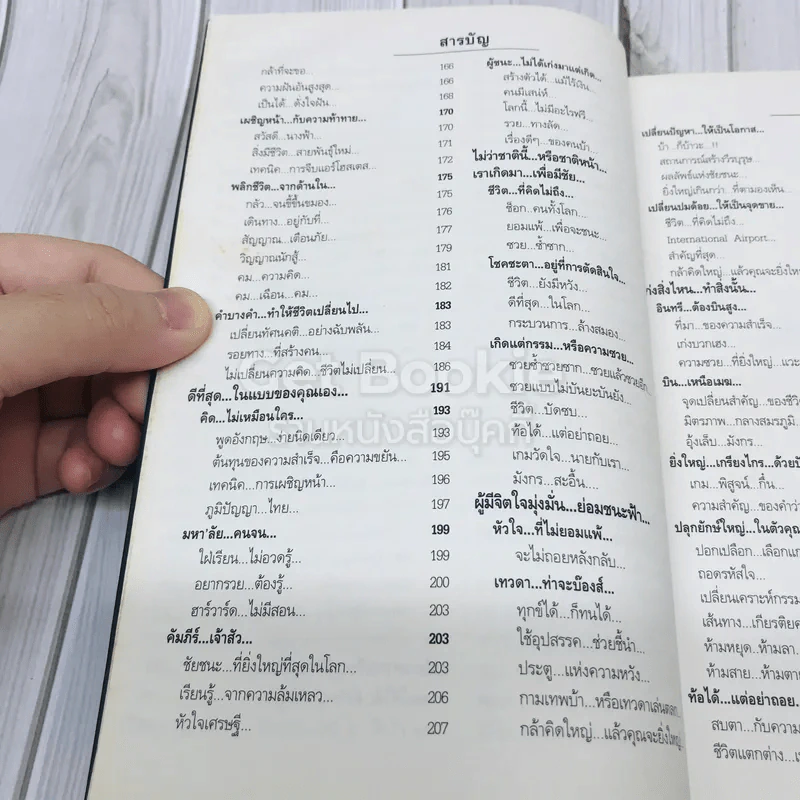 สารบัญ
กล้าที่จะขอ... 166
ความฝันอันสูงสุด... 166
เป็นได้...ดั่งใจฝัน... 168
เผชิญหน้า...กับความท้าทาย... 170
สวัสดี...นางฟ้า... 170
สิ่งมีชีวิต...สายพันธุ์ใหม่... 171
เทคนิค...การจีบแอร์โฮสเตส... 172
พลิกชีวิต...จากด้านใน... 175
กลัว...จนขี้ขึ้นขมอง... 175
เดินทาง...อยู่กับที่... 176
สัญญาณ...เตือนภัย... 177
วิญญาณนักสู้... 179
คม...ความคิด... 181
คม...เฉือน...คม... 182
คำบางคำ...ทำให้ชีวิตเปลี่ยนไป... 183
เปลี่ยนทัศนคติ...อย่างฉับพลัน... 183
รอยทาง...ที่สร้างคน... 184
ไม่เปลี่ยนความคิด...ชีวิตไม่เปลี่ยน... 186
ดีที่สุด...ในแบบของคุณเอง... 191
คิด...ไม่เหมือนใคร... 193
พูดอังกฤษ...ง่ายนิดเดียว... 193
ต้นทุนของความสำเร็จ...คือความขยัน... 195
เทคนิค...การเผชิญหน้า... 196
ภูมิปัญญา...ไทย... 197
มหา'ลัย...คนจน... 199
ใฝ่เรียน...ไม่อวดรู้... 199
อยากรวย...ต้องรู้... 200
ฮาร์วาร์ด...ไม่มีสอน... 203
คัมภีร์...เจ้าสัว... 203
ชัยชนะ...ที่ยิ่งใหญ่ที่สุดในโลก... 203
เรียนรู้...จากความล้มเหลว... 206
หัวใจเศรษฐี... 207
ผู้ชนะ...ไม่ได้เก่งมาแต่เกิด...
สร้างตัวได้...แม้ไร้เงิน...
คนมีเสน่ห์
โลกนี้...ไม่มีอะไรฟรี...
รวย...ทางลัด...
เรื่องดีๆ...ของคนบ้า...
ไม่ว่าชาตินี้...หรือชาติหน้า...
เราเกิดมา...เพื่อมีชัย...
ชีวิต...ที่คิดไม่ถึง...
ช็อก...คนทั้งโลก...
ยอมแพ้...เพื่อจะชนะ...
ซวย...ซ้ำซาก...
โชคชะตา...อยู่ที่การตัดสินใจ...
ชีวิต...ยังมีหวัง...
ดีที่สุด...ในโลก...
กระบวนการ...ล้างสมอง...
เกิดแต่กรรม...หรือความซวย...
ซวยซ้ำซวยซาก...ซวยแล้วซวยอีก...
ซวยแบบไม่บันยะบันยัง...
ชีวิต...บัดซบ...
ท้อได้...แต่อย่าถอย...
เกมวัดใจ...นายกับเรา...
มังกร...สะอื้น....
ผู้มีจิตใจมุ่งมั่น...ย่อมชนะฟ้า...
หัวใจ...ที่ไม่ยอมแพ้...
จะไม่ถอยหลังกลับ...
เทวดา...ท่าจะบ๊องส์...
ทุกข์ได้...ก็ทนได้...
ใช้อุปสรรค...ช่วยชี้นำ...
ประตู...แห่งความหวัง...
กามเทพบ้า...หรือเทวดาเล่นตลก...
กล้าคิดใหญ่...แล้วคุณจะยิ่งใหญ่
เปลี่ยนปัญหา...ให้เป็นโอกาส...
บ้า...ก็บ้าวะ...!!
สถานการณ์สร้างวีรบุรุษ...
ผลลัพธ์แห่งชัยชนะ...
ยิ่งใหญ่เกินกว่า...ที่ตามองเห็น...
เปลี่ยนปมด้อย...ให้เป็นจุดขาย...
ชีวิต...ที่คิดไม่ถึง...
International Airport...
สำคัญที่สุด...
กล้าคิดใหญ่...แล้วคุณจะยิ่งให
ก่งสิ่งไหน...ทำสิ่งนั้น...
อินทรี...ต้องบินสูง...
ที่มา...ของความสำเร็จ...
เก่งบวกเฮง...
ความซวย...ที่ยิ่งใหญ่...
บิน...เหนือเมฆ...
จุดเปลี่ยนสำคัญ...ของชีวิ
มิตรภาพ...กลางสมรภูมิ
อุ้งเล็บ...มังกร...
ยิ่งใหญ่...เกรียงไกร...ด้วย
เกม...พิสูจน์...กึ๋น...
ความสำคัญ...ของคำว่า
ปลุกยักษ์ใหญ่...ในตัวคุณ
ปอกเปลือก...เลือกแก่
ถอดรหัสใจ...
เปลี่ยนเคราะห์กรรม
เส้นทาง...เกียรติย
ห้ามหยุด...ห้ามลา...
ห้ามสาย...ห้ามตาย
ท้อได้...แต่อย่าถอย...
สบตา...กับความ
ชีวิตแตกต่าง...เ
Get Bookie
รวมหนังสือบุ๊ค